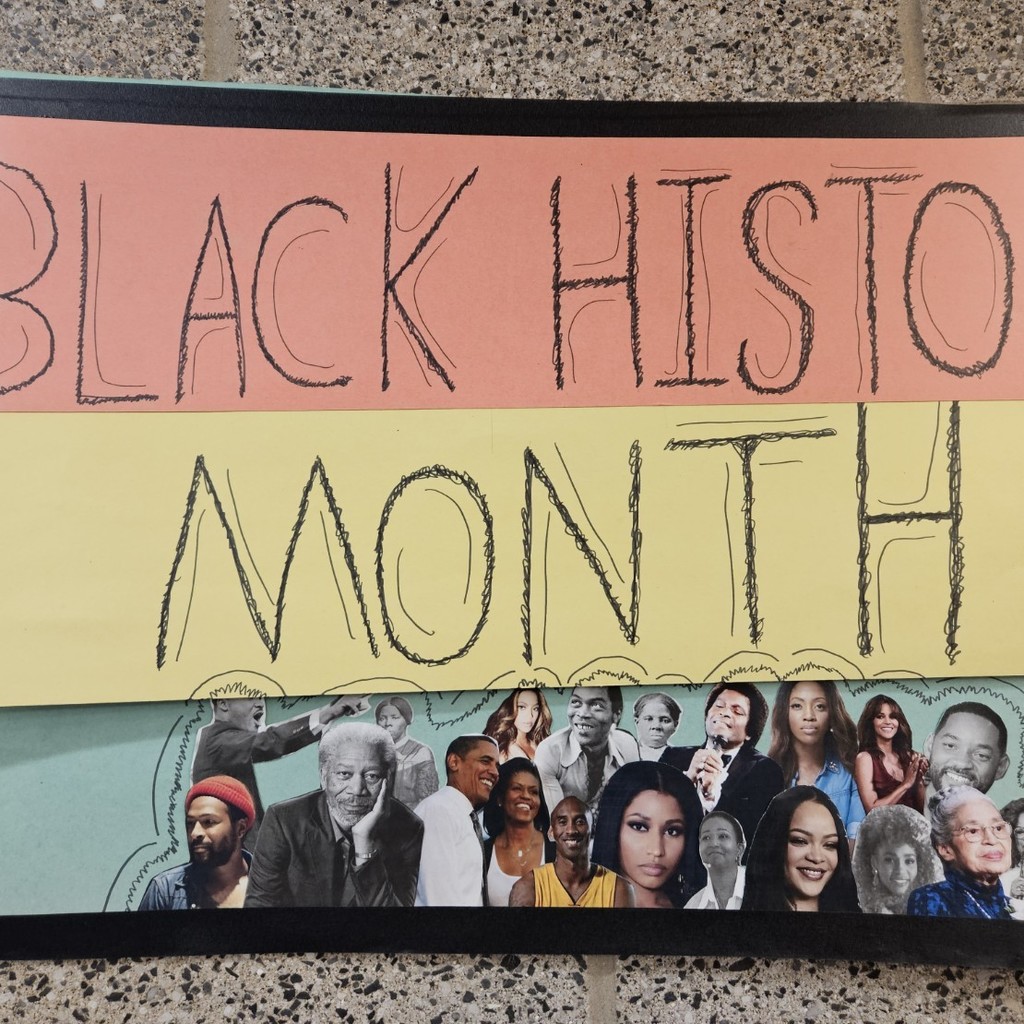 BLACK HISTO
MONTH